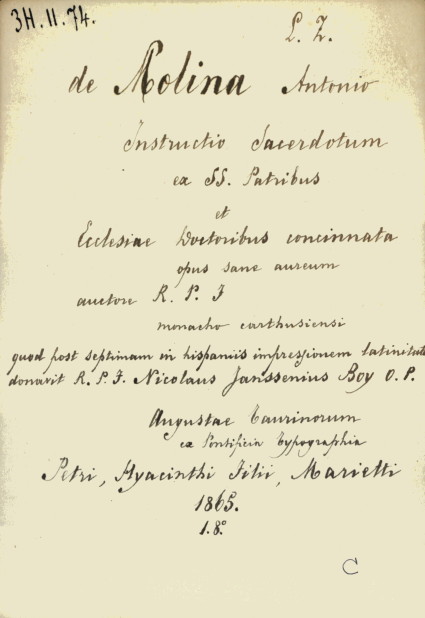 3H.11.74.
L. Z.
de Molina Antonio
Instructio Sacerdotum
ex SS. Patribus
et
Ecclesiae Doctoribus concinnata
opus sane aureum
auctore R. P. F
monacho carthusiensi
quod post septimam in hispaniis impressionem latinitate
donavit R. P. F. Nicolaus Janssenius Boy O. P.
Augustae Taurinorum
ex Pontificia Typographia
Petri, Hyacinthi Filii, Marietti
1865.
1.8°
C